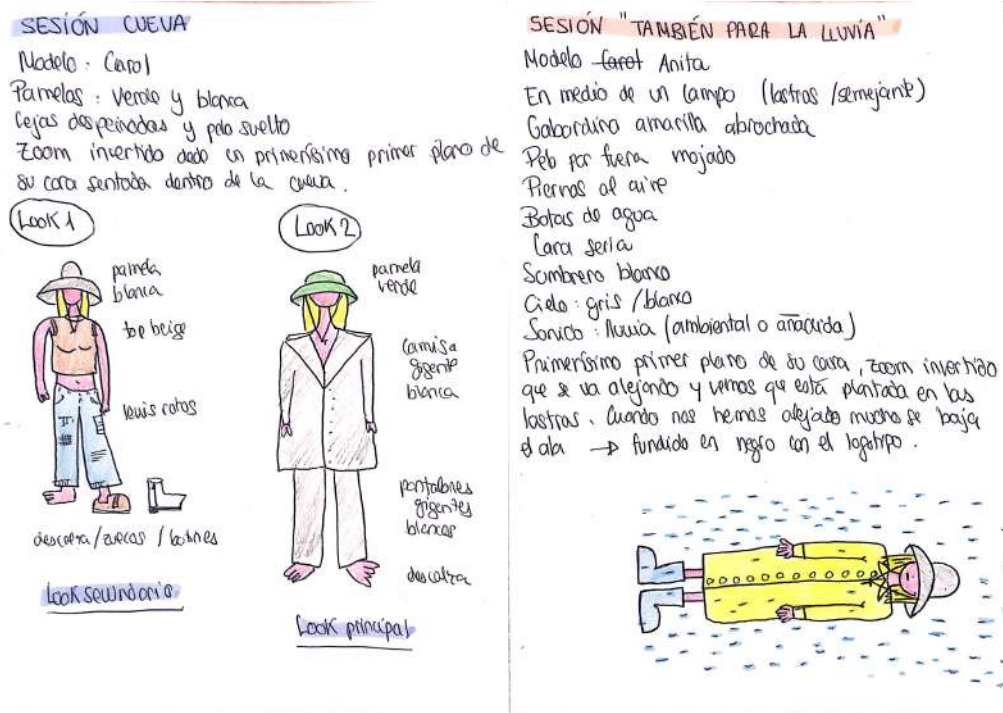 SESIÓN CUEVA
Modelo: Carol
Pamelas: verde y blanca
Cejas despeinadas y pelo suelto
Zoom invertido dado en primerísimo primer plano de
su cara sentada dentro de la cueva.
Look 1
pamela
blanca
top beige
levis rotos
descalza/zuecos/botines
Look secundario
Look 2
pamela
verde
camisa
gigente
blanca
pantalones
gigentes
blancos
descalza
Look principal
SESIÓN "TAMBIÉN PARA LA LLUVÍA"
Modelo Carol Anita
En medio de un campo (lastras/semejante)
Gabardina amarilla abrochada
Pelo por fuera mojado
Piernas al aire
Botas de agua
Cara seria
Sombrero blanco
Cielo: gris/blanco
Sonido: lluvia (ambiental o añadida)
Primerísimo primer plano de su cara, zoom invertido
que se va alejando y vemos que está plantada en las
lastras. Cuando nos hemos alejado mucho se baja
el ala → fundido en negro con el logotipo.